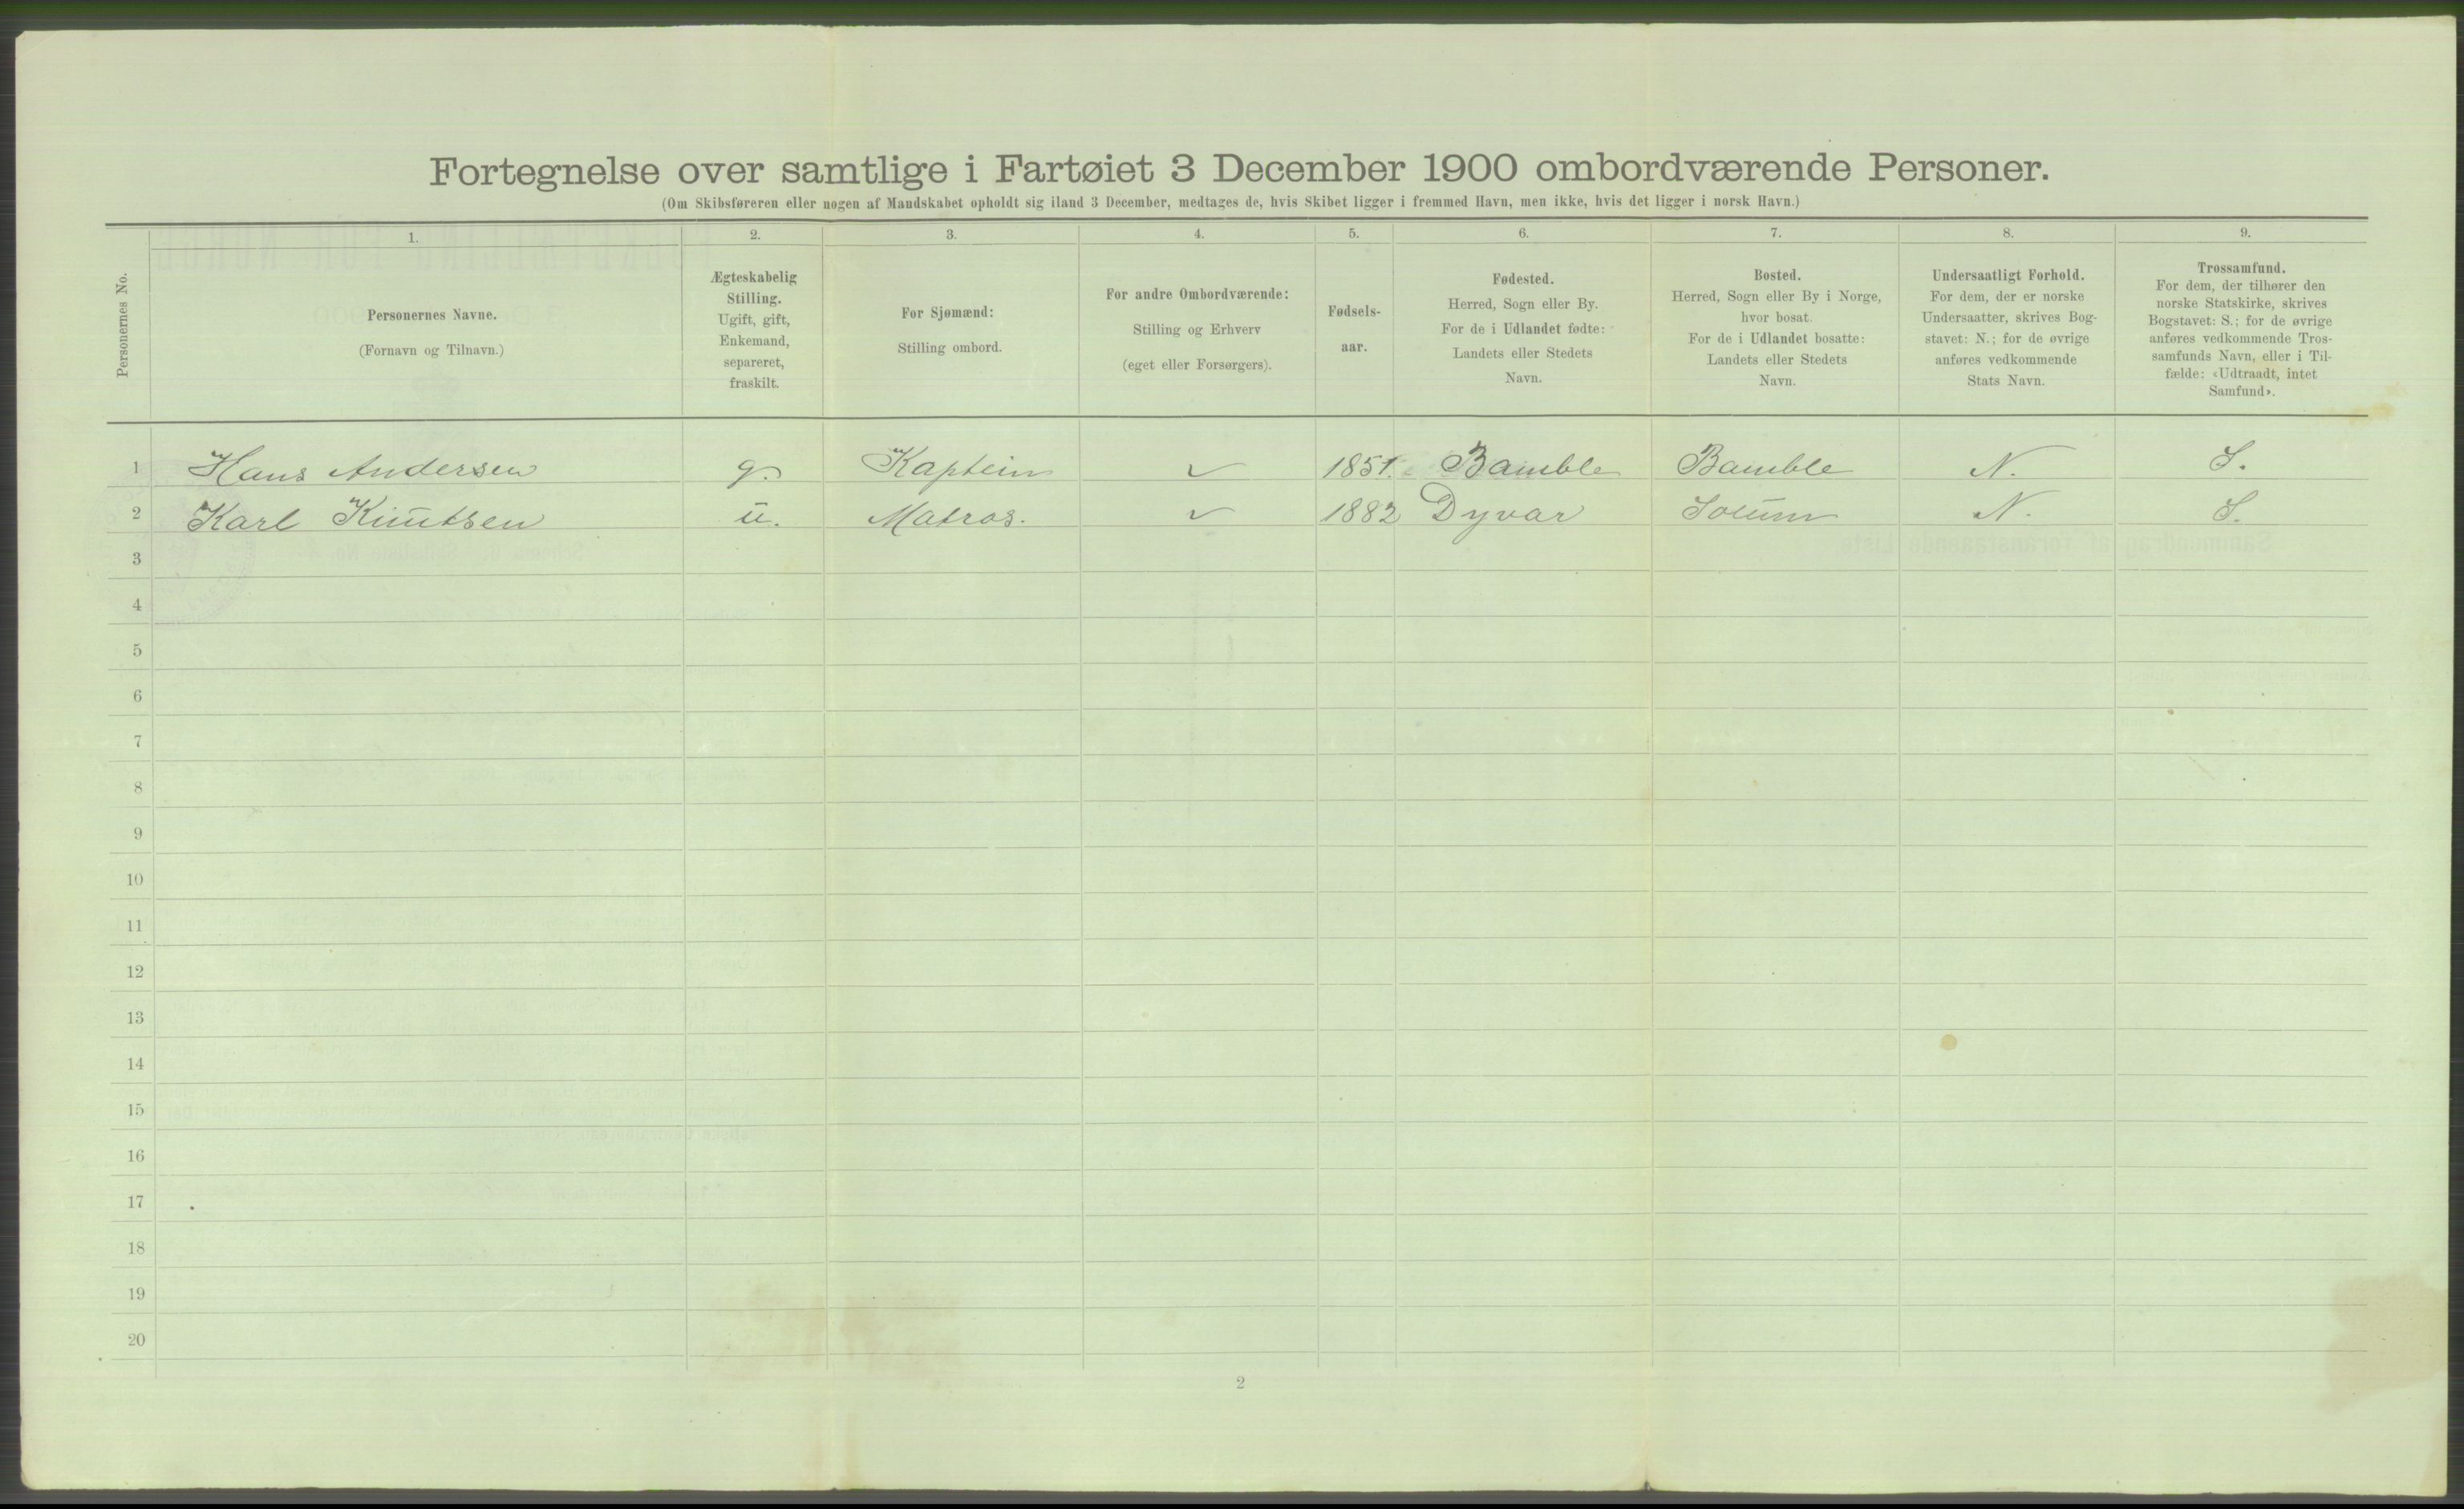 Fortegnelse over samtlige i Fartøiet 3 December 1900 ombordværende Personer.
(Om Skibsføreren eller nogen af Mandskabet opholdt sig iland 3 December, medtages de, hvis Skibet ligger i fremmed Havn, men ikke, hvis det ligger i norsk Havn.)
Personernes No.
1. 2. 3. 4. 5. 6. 7. 8. 9.
Personernes Navne.
(Fornavn og Tilnavn.)
Ægteskabelig
Stilling.
Ugift, gift,
Enkemand,
separeret,
fraskilt.
For Sjømænd:
Stilling ombord.
For andre Ombordværende:
Stilling og Erhverv
(eget eller Forsørgers).
Fødsels-
aar.
Fødested.
Herred, Sogn eller By.
For de i Udlandet fødte:
Landets eller Stedets
Navn.
Bosted.
Herred, Sogn eller By i Norge,
hvor bosat.
For de i Udlandet bosatte:
Landets eller Stedets
Navn.
Undersaatligt Forhold.
For dem, der er norske
Undersaatter, skrives Bog-
stavet: N.; for de øvrige
anføres vedkommende
Stats Navn.
Trossamfund.
For dem, der tilhører den
norske Statskirke, skrives
Bogstavet: S.; for de øvrige
anføres vedkommende Tros-
samfunds Navn, eller i Til-
fælde: «Udtraadt, intet
Samfund».
1 Hans Andersen g. Kaptein 1851. Bamble Bamble N. S.
2 Karl Knutsen u. Matros. 1882 Dyvar Solum N. S.
3
4
5
6
7
8
9
10
11
12
13
14
15
16
17
18
19
20
2